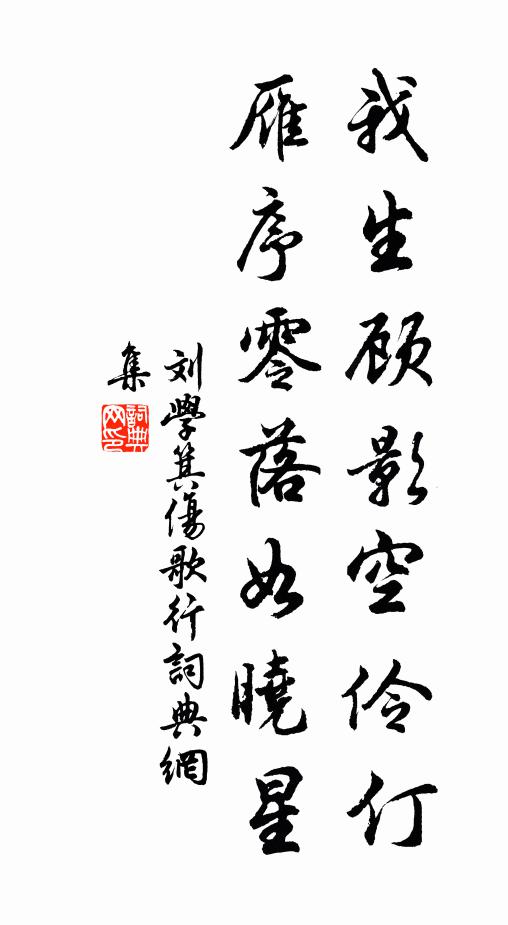 我生顾影空伶仃
雁序零落如曉星
刘學箕傷歌行詞典網
集
詞典
网印